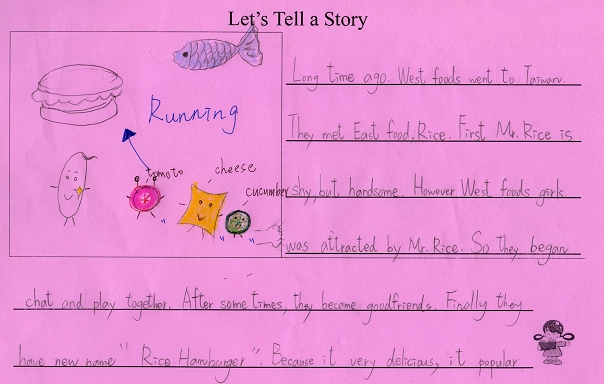 Let's Tell a Story
Running
tomoto
cheese
cucumber
Long time ago. West foods went to Taiwan.
They met East food, Rice. First Mr. Rice is
shy but handsome. However West foods girls
was attracted by Mr. Rice. So they began
chat and play together. After some times, they became goodfriends. Finally they
have new name "Rice Hamburger". Because it very delicious, it popular